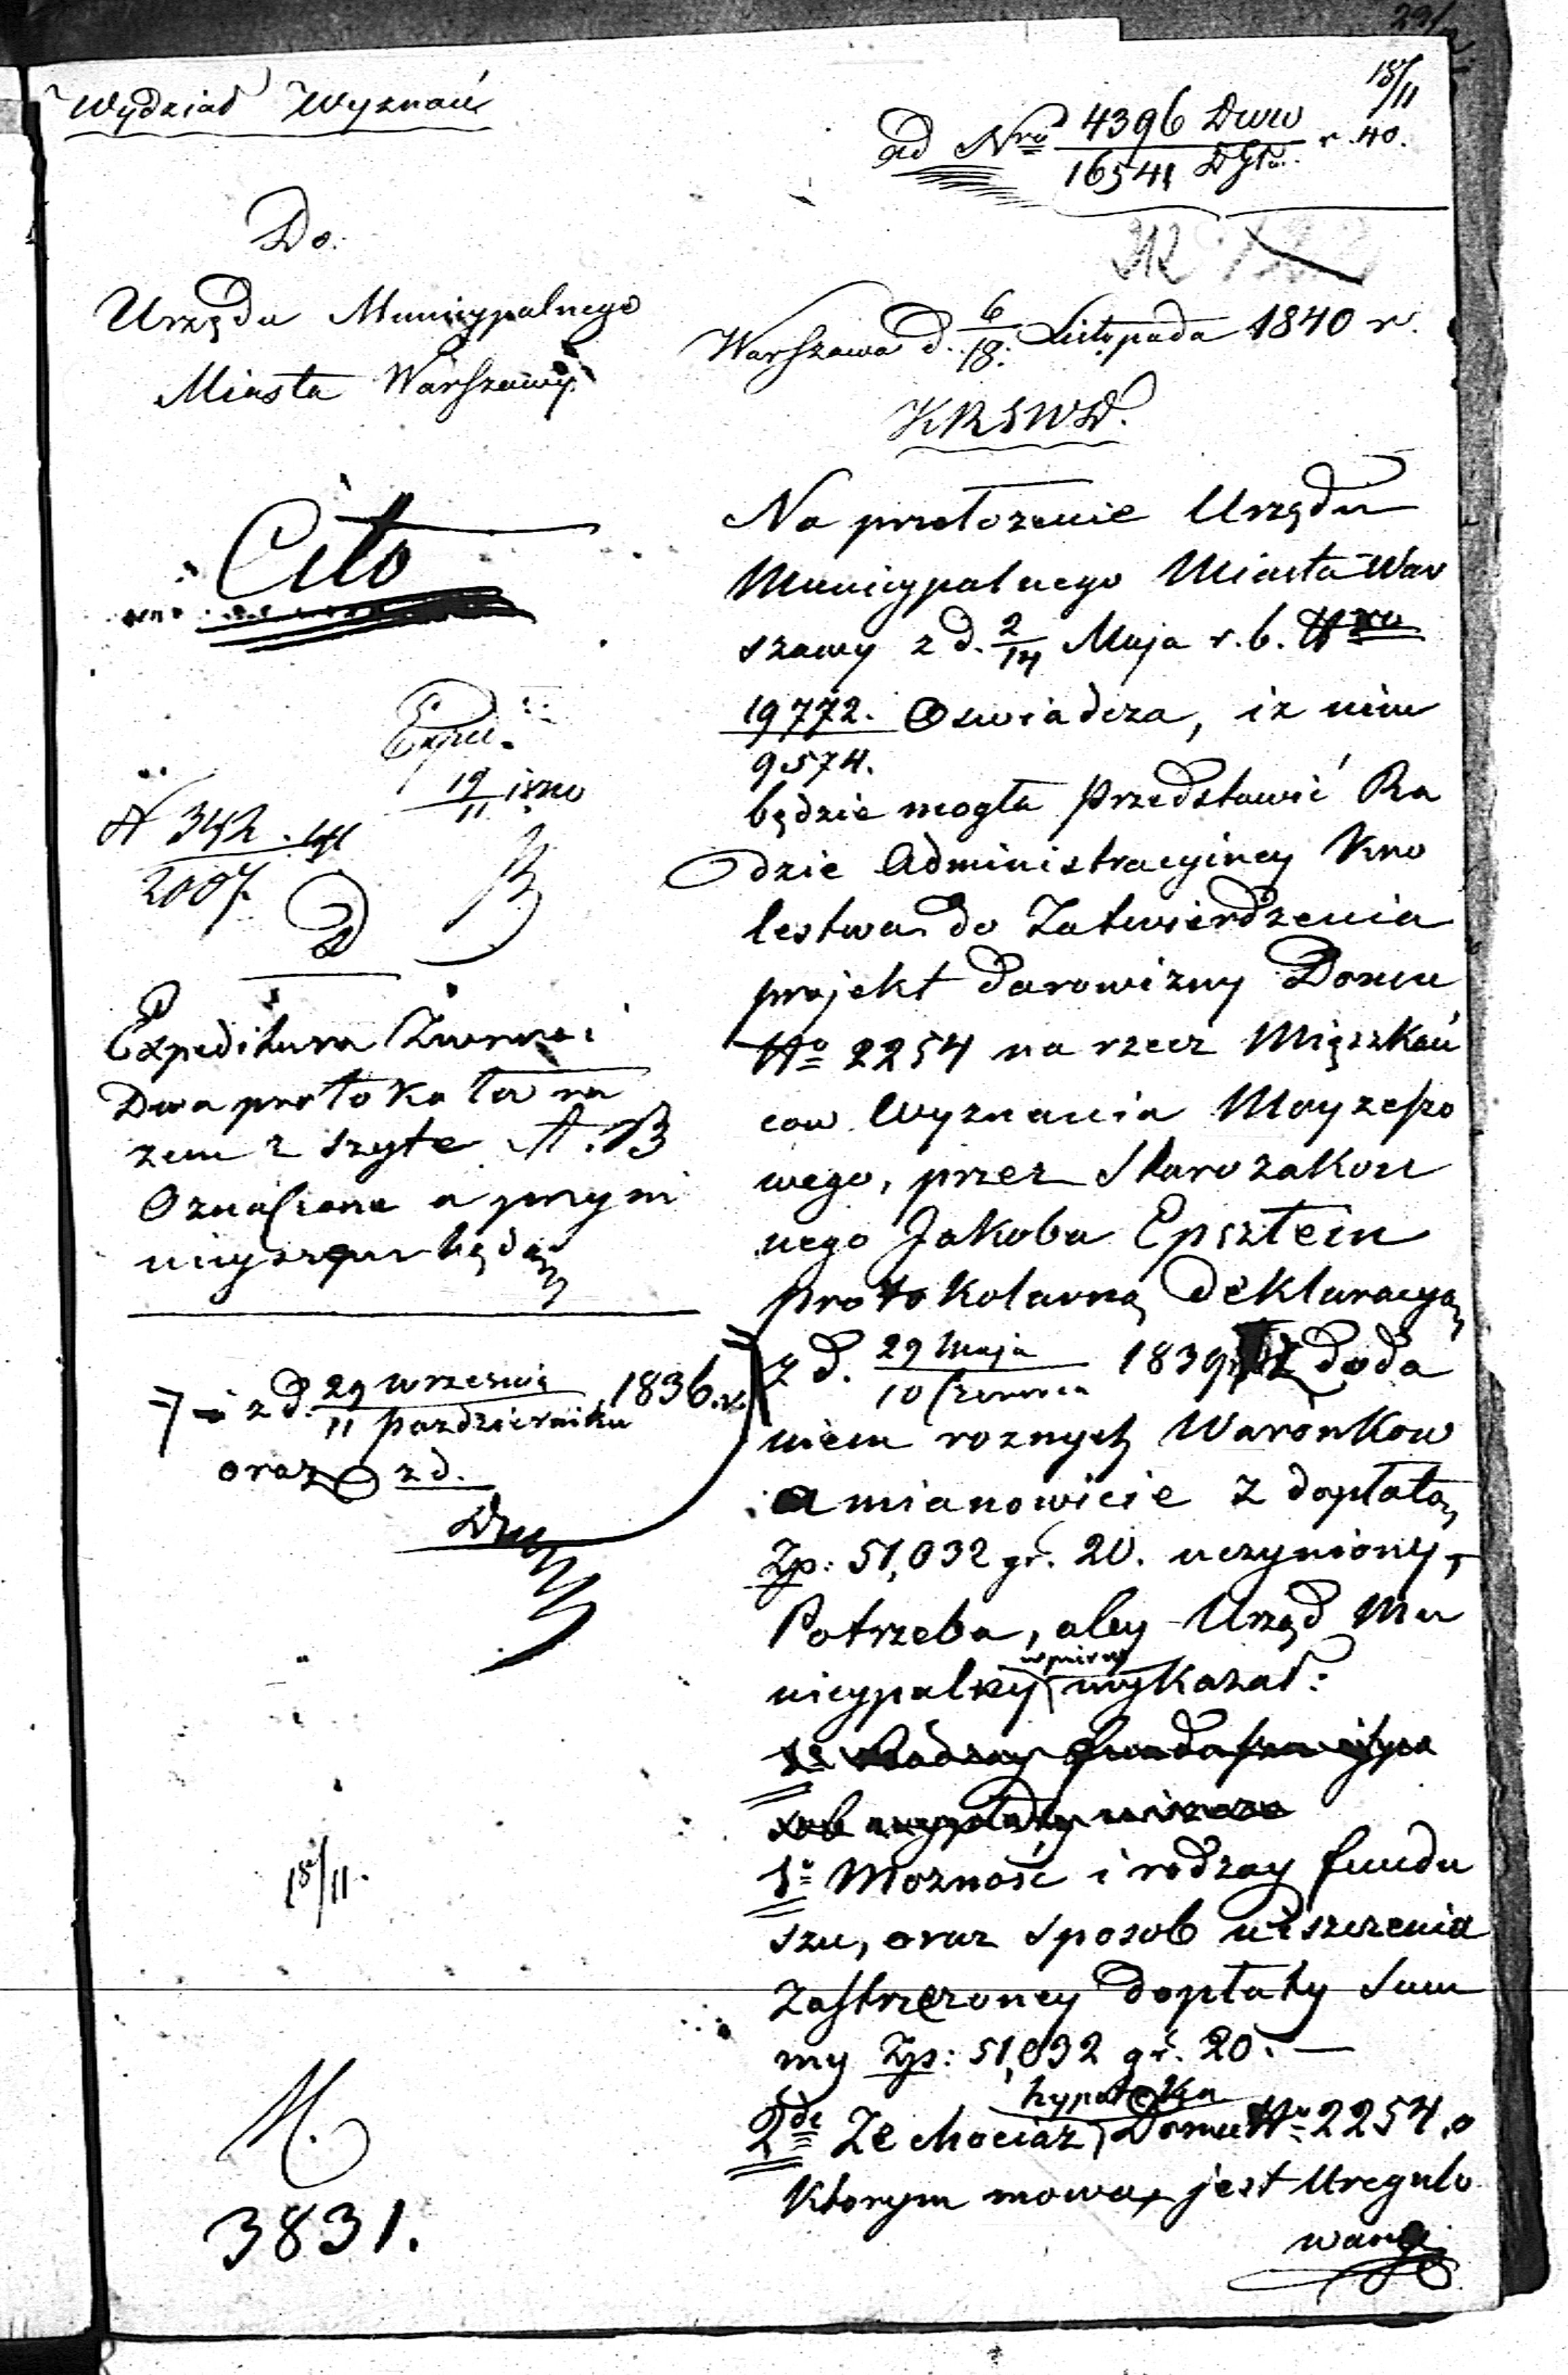 Wydział Wyznań
18/11
ad Nro 4396 Dww / 16541 Dgłu. r. 40.
Do.
Urzędu Municypalnego
Miasta Warszawy
Warszawa d. 6/18. Listopada 1840 r.
KRSWD.
Cito
Expd.
19/11 
N 342
2007.
Expeditura Zwroci
Dwa protokoła ra
zem z szyte A. B
Oznaczone a przy ni
nieyszym będące
i z d. 29 Wrzesnia / 11 Pazdziernika 1836. r.
oraz z d.
18/11.
M.
3831.
Na przełozenie Urzędu
Municypalnego Miasta War
szawy z d. 2/14 Maja r. b. Nro
19772. Oswiadcza, iz nim
9574.
będzie mogła przedstawić Ra
dzie Administracyiney Kro
lestwa do Zatwierdzenia
projekt darowizny Domu
No 2254 na rzecz Mięszkań
cow Wyznania Moyzeszo
wego, przez Starozakon
nego Jakoba Epsztein
protokolarną deklaracyą
z d. 29 Maja / 10 Czerwca 1839 z doda
niem roznych Warunkow
a mianowicie z dopłatą
Zp: 51,032 gr. 20. uczyniony,
Potrzeba, aby Urząd Mu
nicypalny wpierw wykazał:
1o Mozność i rodzay fundu
szu, oraz sposob uiszczenia
Zastrzezoney dopłaty Sum
my Zp: 51,032 gr. 20. —
2de Ze chociaz hypoteka Domu No 2254. o
ktorym mowa, jest Uregulo
waną